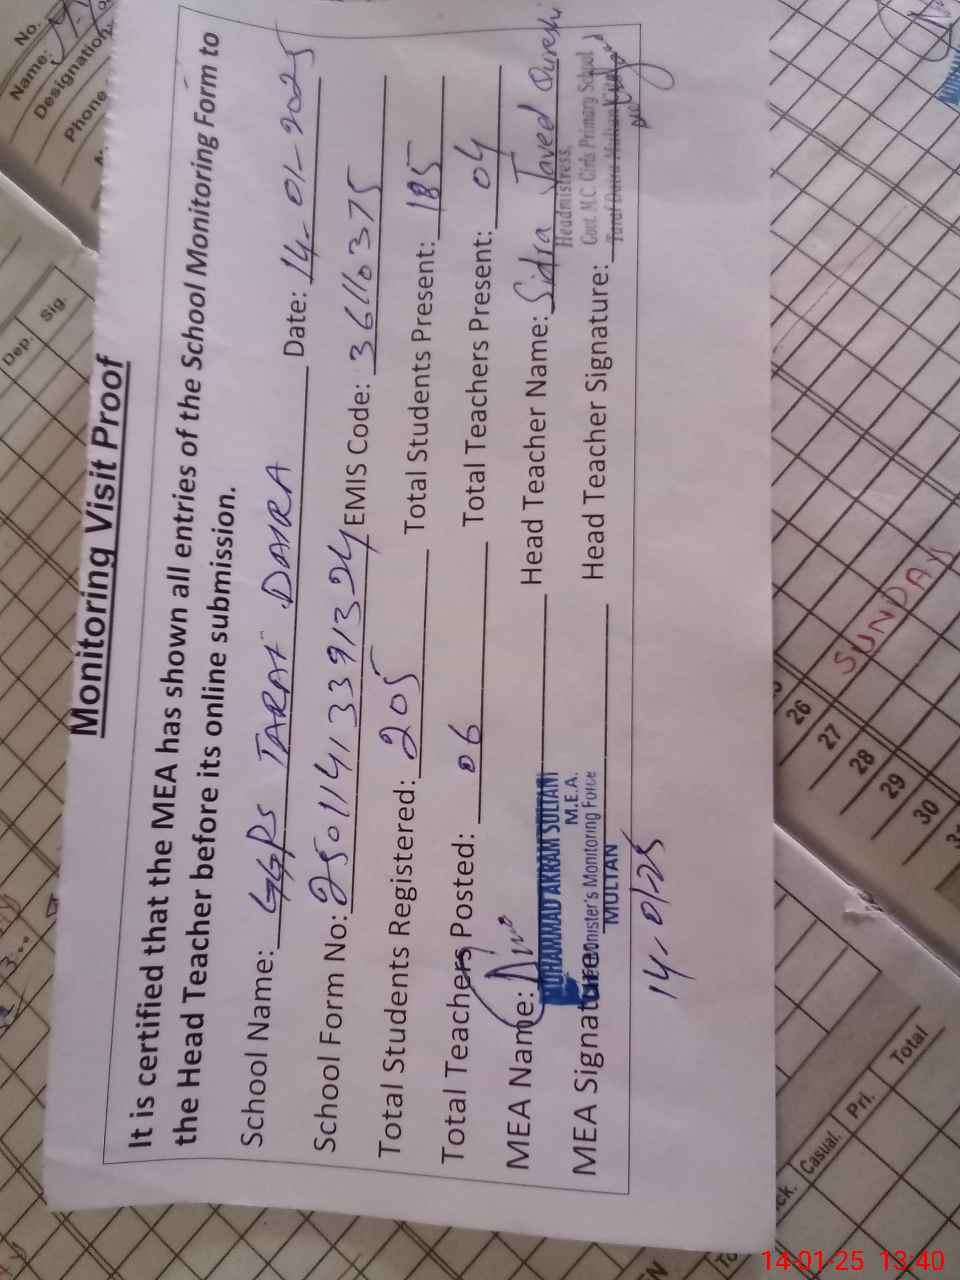 Monitoring Visit Proof
It is certified that the MEA has shown all entries of the School Monitoring Form to
the Head Teacher before its online submission.
School Name: GGPS TARAF DAIRA Date: 14-01-2025
School Form No: 25011413391324 EMIS Code: 36110375
Total Students Registered: 205 Total Students Present: 185
Total Teachers Posted: 06 Total Teachers Present: 04
MEA Name: Head Teacher Name: Sidra Javed Qureshi
MUHAMMAD AKRAM SULTANI
M.E.A.
Monitoring Force
MULTAN
MEA Signature: Head Teacher Signature:
Headmistress,
Govt. M.C. Girls Primary School
Taraf Daira Multan City
14-01-25
No.
Name:
Designation
Phone
Dep. Sig.
SUNDAY
26
27
28
29
30
Casual. Pri. Total
14-01-25 13:40